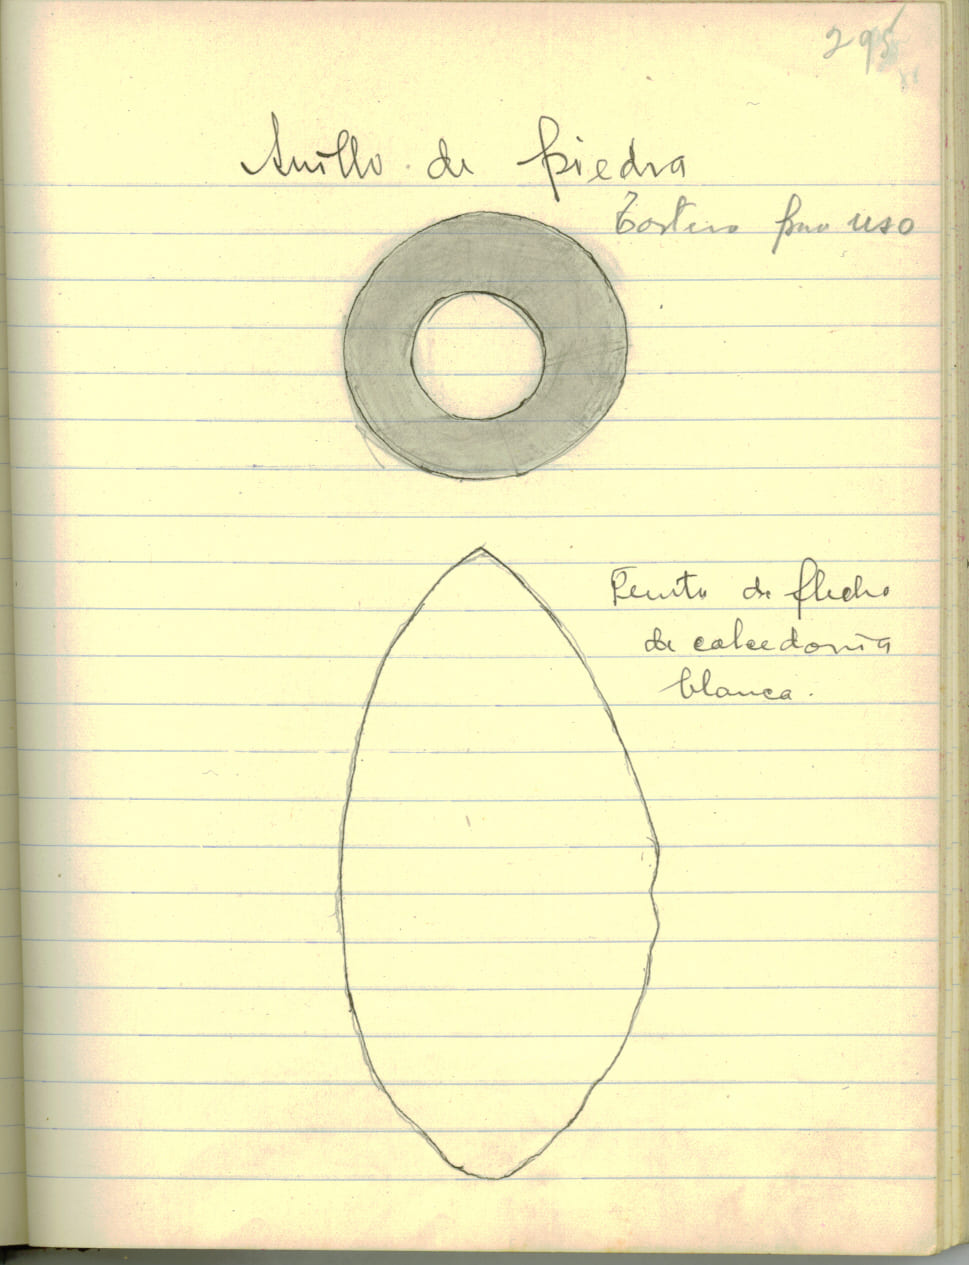 295
Anillo de piedra
Tortero para uso
Punta de flecha
de calcedonia
blanca.